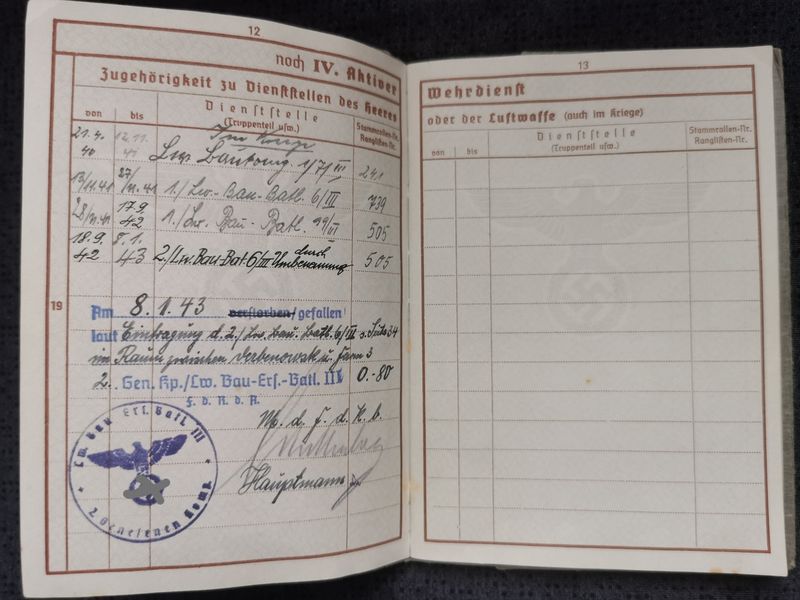 12
noch IV. Aktiver
Zugehörigkeit zu Dienststellen des Heeres
von
bis
Dienststelle
(Truppenteil usw.)
Stammrollen-Nr.
Ranglisten-Nr.
21.4.40 12.11.41 Lw. Baukomp. 1/71 III 241
13/11.41 27/11.41 1./Lw.-Bau-Batl. 6/III 739
28/11.41 17.9.42 1./Lw. Bau-Batl. 505
18.9.42 8.1.43 2./Lw. Bau-Bat 6/III durch Umbenennung 505
19
Am 8.1.43 verstorben/gefallen
laut Eintragung d. 2./Lw. Bau. Batl. 6/III s. Seite 34
im Raum zwischen u.
2. Gen. Kp./Lw. Bau-Ers.-Batl. III 0.-80
F. d. R. d. A.
M. d. F. d. K. b.
Hauptmann
Lw. Bau Ers. Batl. III
2. Genesenen Komp.
13
Wehrdienst
oder der Luftwaffe (auch im Kriege)
von
bis
Dienststelle
(Truppenteil usw.)
Stammrollen-Nr.
Ranglisten-Nr.